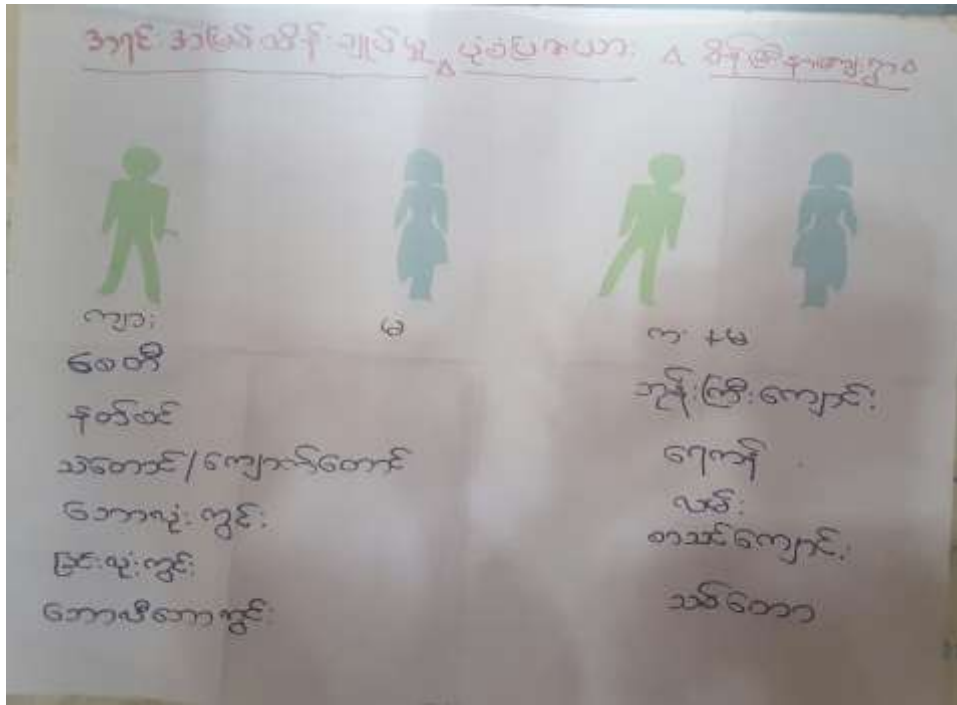 အရင်းအမြစ်ထိန်းချုပ်မှု ပုံပြဇယား
ကျား
မ
ကျား + မ
စေတီ
နတ်စင်
သဲတောင်/ကျောက်တောင်
ဘောလုံးကွင်း
ခြင်းလုံးကွင်း
ဘောလီဘောကွင်း
ဘုန်းကြီးကျောင်း
ရေကန်
လမ်း
စာသင်ကျောင်း
သစ်တော